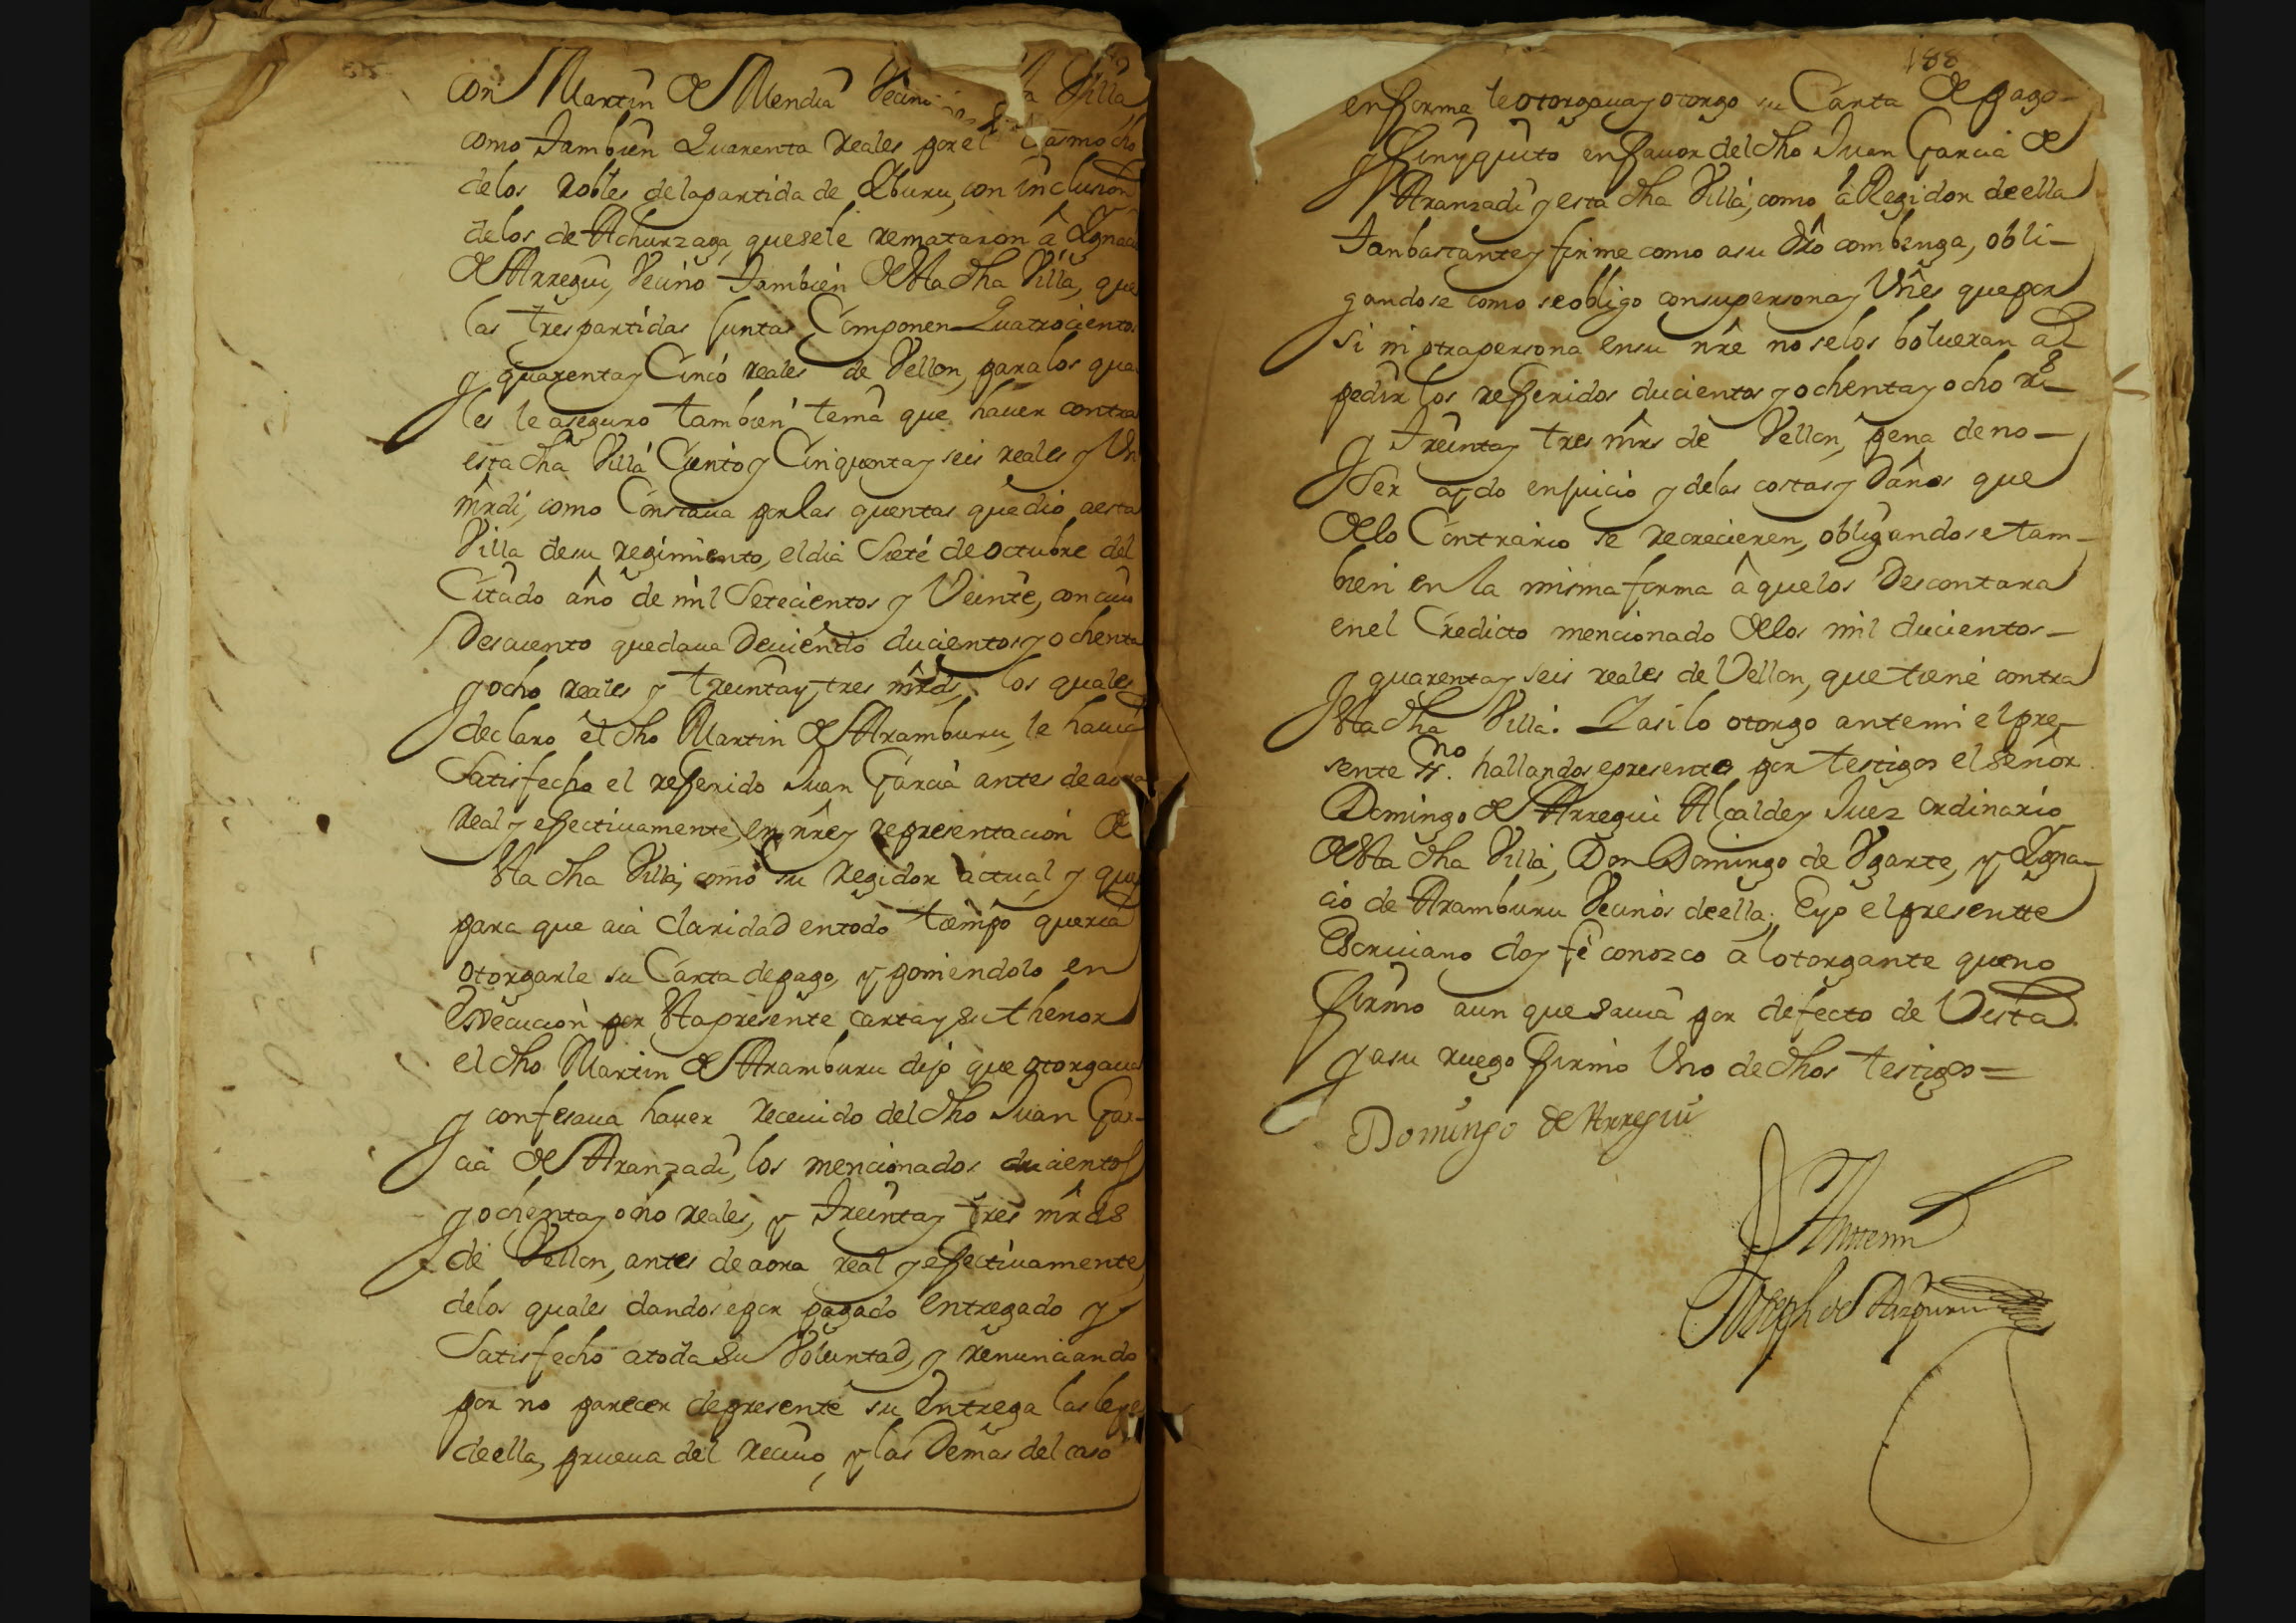 Con Martin de Mendia Vecino Villa
como tambien Quarenta reales por el Casmo dho
delos robles dela partida de Yburu, con inclusion
delos de Achurzaga, quesele remataron â Ygnacio
de Arregui, Vecino tambien desta dha Villa, que
las tres partidas Juntas Componen Quatrocientos
y quarentay Cinco reales de Vellon, paralos qua
les le aseguro tambien tenia que hauer contra
esta dha Villa Ciento y Cinquentay seis reales y Un
mrdi, como Constaua porlas quentas que dio aesta
Villa desu regimiento, eldia Siete de octubre del
Citado año de mil Setecientos y Veinte, con cuio
Descuento quedaua Deuiendo ducientos y ochenta
y ocho reales y treintay tres mrds, los quales
declaro el dho Martin de Aramburu, le hauia
Satisfecho el referido Juan Garcia antes de aora
Real y efectiuamente, en nrẽ y representacion de
sta dha Villa, como su regidor actual y que
para que aia claridad entodo tiempo queria
otorgarle su Carta depago, y poniendolo en
Execucion por sta presente carta y su thenor
el dho Martin de Aramburu dijo que otorgaua
y confesaua hauer receuido del dho Juan Gar-
cia de Aranzadi, los mencionados ducientos
y ochentay ocho reales, y treintay tres mrds
de Vellon, antes deaora real y efectiuamente
delos quales dandose por pagado entregado y
Satisfecho atoda su Voluntad, y renunciando
por no parecer depresente su entrega las leyes
deella, prueua del reciuo, y las Demas del caso
188
enforma le otorgaua y otorgo su Carta de pago-
y finyquito enfauor del dho Juan Garcia de
Aranzadi y esta dha Villa, como â Regidor deella
Tanbastante y firme como asu dro combenga, obli-
gandose como seobligo consupersona y Vnẽs que por
Si ni otrapersona ensu nrẽ noselos bolueran â
pedir los referidos ducientos y ochentay ocho rs
y treintay tres mrs de Vellon, pena deno-
Ser oydo enjuicio y delas costas y Daños que
delo Contrario se recrecieren, obligandose tam-
bien en la misma forma â quelos Descontara
enel Credicto mencionado delos mil ducientos-
y quarentay seis reales de Vellon, que tiene contra
sta dha Villa. Y asilo otorgo antemi el pre-
sente ssno. hallandosepresentes por testigos el Señor
Domingo de Arregui Alcalde y Juez ordinario
desta dha Villa, Don Domingo de Vgarte, y Ygna-
cio de Aramburu Vecinos deella; Eyo elpresentte
Escriuano doy fe conozco al otorgante queno
firmo aun que sauia por defecto de Vista
y asu ruego firmo Vno de dhos testigos=
Domingo de Arregui
Antemi
Joseph de Aizpuru